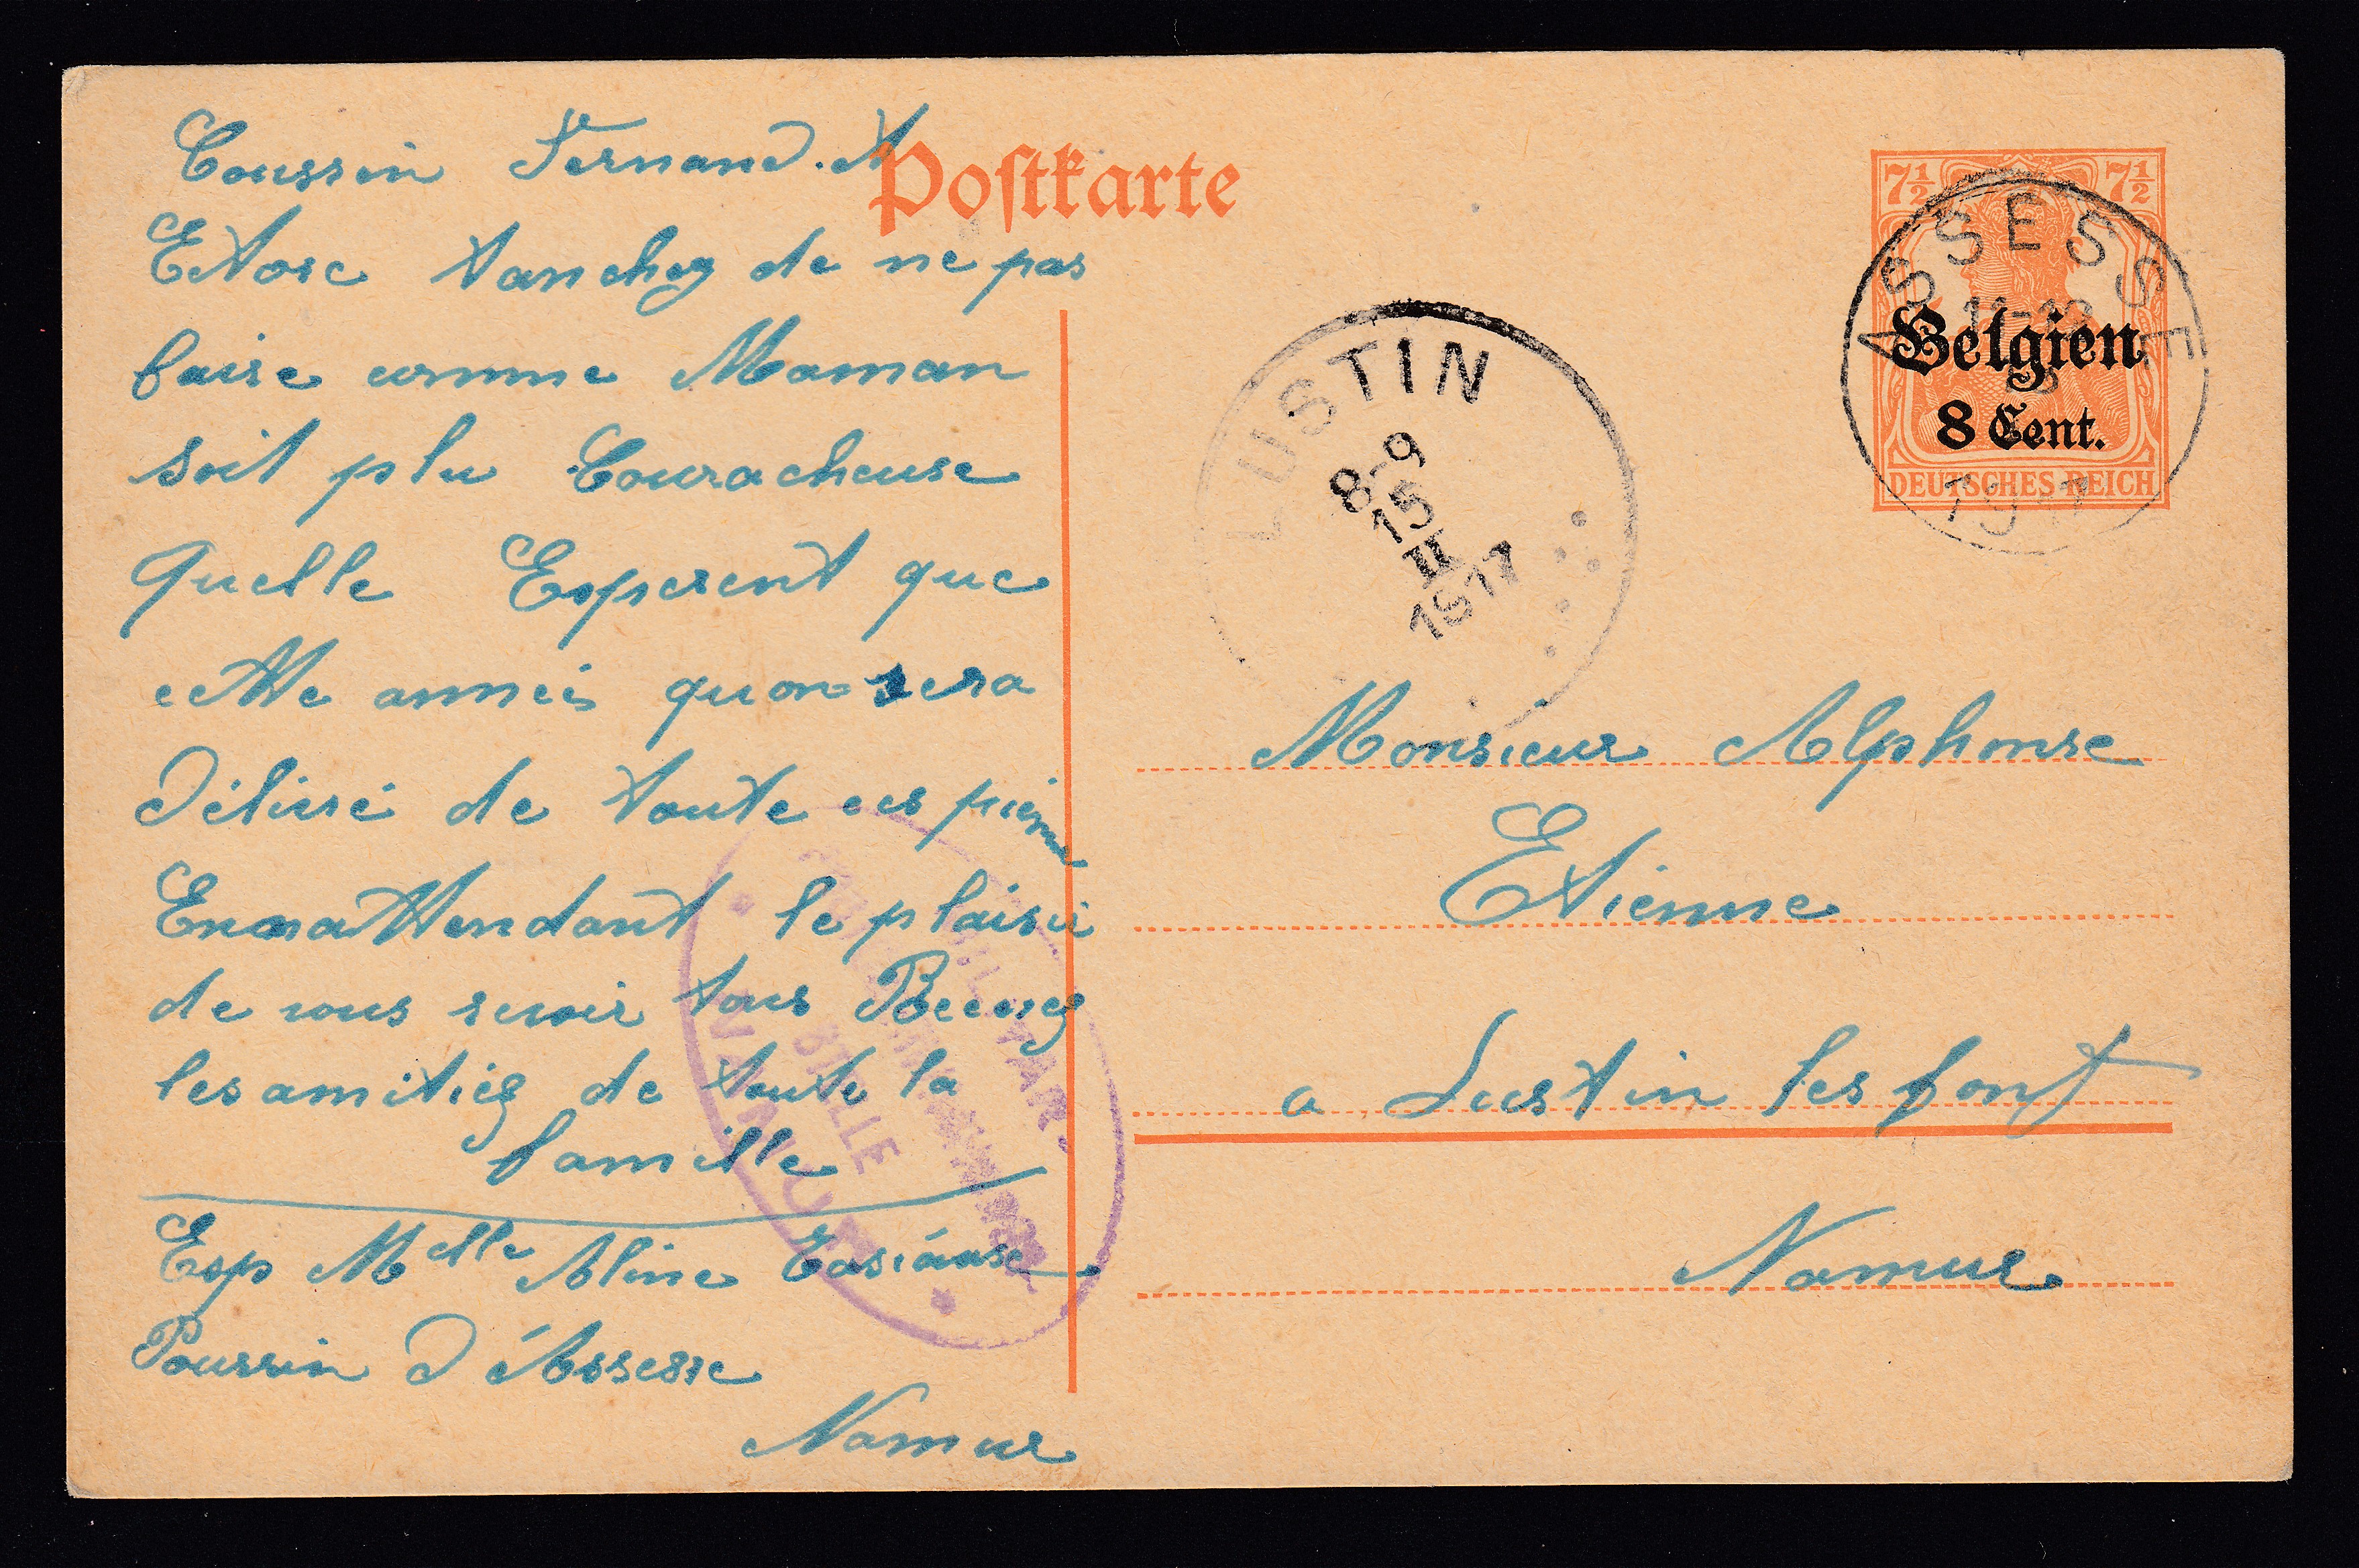 Coussin Fernand. A
Postkarte
Et vose tanchez de ne pas
faire comme Maman
soit plu Couracheuse
Quelle Esperent que
cette anneés quon sera
Délivré de toute ces pieine
En attendant le plaisir
de vous revoir tous Recevez
les amitiés de toute la
famille
Exp Melle Aline
Poussin D'éAssesse
Namur
7½ 7½
ASSESSE
11-12
1917
Belgien
8 Cent.
DEUTSCHES REICH
LUSTIN
8-9
15
II
1917
Monsieur Alphonse
Etienne
a Lustin les fonf
Namur